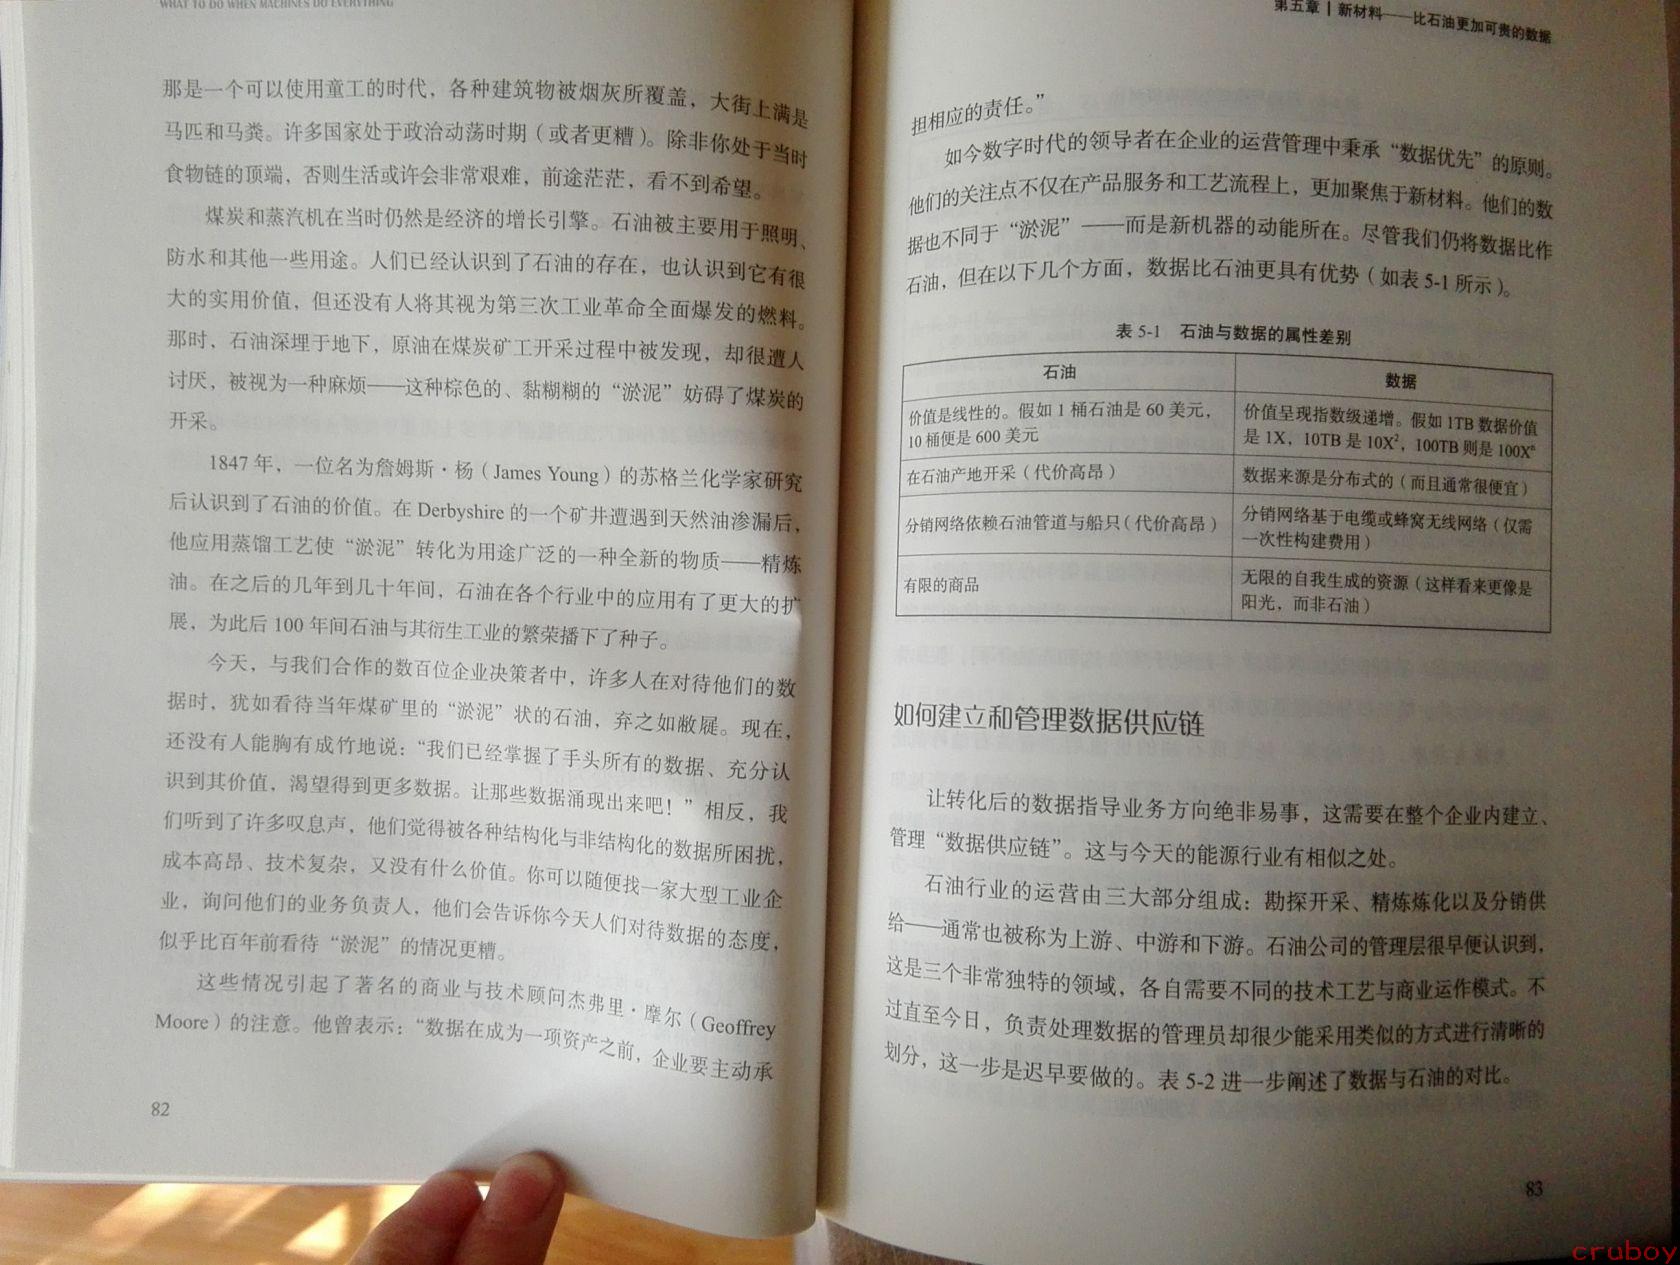 WHAT TO DO WHEN MACHINES DO EVERYTHING
那是一个可以使用童工的时代，各种建筑物被烟灰所覆盖，大街上满是
马匹和马粪。许多国家处于政治动荡时期（或者更糟）。除非你处于当时
食物链的顶端，否则生活或许会非常艰难，前途茫茫，看不到希望。
煤炭和蒸汽机在当时仍然是经济的增长引擎。石油被主要用于照明、
防水和其他一些用途。人们已经认识到了石油的存在，也认识到它有很
大的实用价值，但还没有人将其视为第三次工业革命全面爆发的燃料。
那时，石油深埋于地下，原油在煤炭矿工开采过程中被发现，却很遭人
讨厌，被视为一种麻烦——这种棕色的、黏糊糊的“淤泥”妨碍了煤炭的
开采。
1847 年，一位名为詹姆斯·杨（James Young）的苏格兰化学家研究
后认识到了石油的价值。在 Derbyshire 的一个矿井遭遇到天然油渗漏后，
他应用蒸馏工艺使“淤泥”转化为用途广泛的一种全新的物质——精炼
油。在之后的几年到几十年间，石油在各个行业中的应用有了更大的扩
展，为此后 100 年间石油与其衍生工业的繁荣播下了种子。
今天，与我们合作的数百位企业决策者中，许多人在对待他们的数
据时，犹如看待当年煤矿里的“淤泥”状的石油，弃之如敝屣。现在，
还没有人能胸有成竹地说：“我们已经掌握了手头所有的数据、充分认
识到其价值，渴望得到更多数据。让那些数据涌现出来吧！”相反，我
们听到了许多叹息声，他们觉得被各种结构化与非结构化的数据所困扰，
成本高昂、技术复杂，又没有什么价值。你可以随便找一家大型工业企
业，询问他们的业务负责人，他们会告诉你今天人们对待数据的态度，
似乎比百年前看待“淤泥”的情况更糟。
这些情况引起了著名的商业与技术顾问杰弗里·摩尔（Geoffrey
Moore）的注意。他曾表示：“数据在成为一项资产之前，企业要主动承
82
第五章 | 新材料——比石油更加可贵的数据
担相应的责任。”
如今数字时代的领导者在企业的运营管理中秉承“数据优先”的原则。
他们的关注点不仅在产品服务和工艺流程上，更加聚焦于新材料。他们的数
据也不同于“淤泥”——而是新机器的动能所在。尽管我们仍将数据比作
石油，但在以下几个方面，数据比石油更具有优势（如表 5-1 所示）。
表 5-1 石油与数据的属性差别
石油 数据
价值是线性的。假如 1 桶石油是 60 美元， 价值呈现指数级递增。假如 1TB 数据价值
10 桶便是 600 美元 是 1X，10TB 是 10X²，100TB 则是 100Xⁿ
在石油产地开采（代价高昂） 数据来源是分布式的（而且通常很便宜）
分销网络依赖石油管道与船只（代价高昂） 分销网络基于电缆或蜂窝无线网络（仅需
一次性构建费用）
有限的商品 无限的自我生成的资源（这样看来更像是
阳光，而非石油）
如何建立和管理数据供应链
让转化后的数据指导业务方向绝非易事，这需要在整个企业内建立、
管理“数据供应链”。这与今天的能源行业有相似之处。
石油行业的运营由三大部分组成：勘探开采、精炼炼化以及分销供
给——通常也被称为上游、中游和下游。石油公司的管理层很早便认识到，
这是三个非常独特的领域，各自需要不同的技术工艺与商业运作模式。不
过直至今日，负责处理数据的管理员却很少能采用类似的方式进行清晰的
划分，这一步是迟早要做的。表 5-2 进一步阐述了数据与石油的对比。
83
cruboy